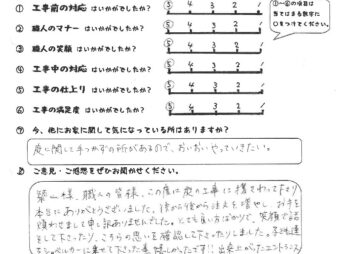 ① 工事前の対応 はいかがでしたか? ⑤ 4 3 2 1
② 職人のマナー はいかがでしたか? ⑤ 4 3 2 1
③ 職人の笑顔 はいかがでしたか? ⑤ 4 3 2 1
④ 工事中の対応 はいかがでしたか? ⑤ 4 3 2 1
⑤ 工事の仕上り はいかがでしたか? ⑤ 4 3 2 1
⑥ 工事の満足度 はいかがでしたか? ⑤ 4 3 2 1
①〜⑥の項目は
当てはまる数字に
○をつけてください。
⑦ 今、他にお家に関して気になっている所はありますか?
庭に関して手つかずの所があるので、おいおいやっていきたい。
⑧ ご意見・ご感想をぜひお聞かせください。
築山様、職人の皆様、この度は庭の工事に携さわって下さり
本当にありがとうございました。後から後から注文を増やし、お手を
煩わせまして申し訳ありませんでした。とても良い方ばかりで、笑顔で話
をして下さったり、こちらの思いを確認して下さったりしました。子ども達
もショベルカーに乗せて下った事、嬉しかったです!! 出来上がったエントランス